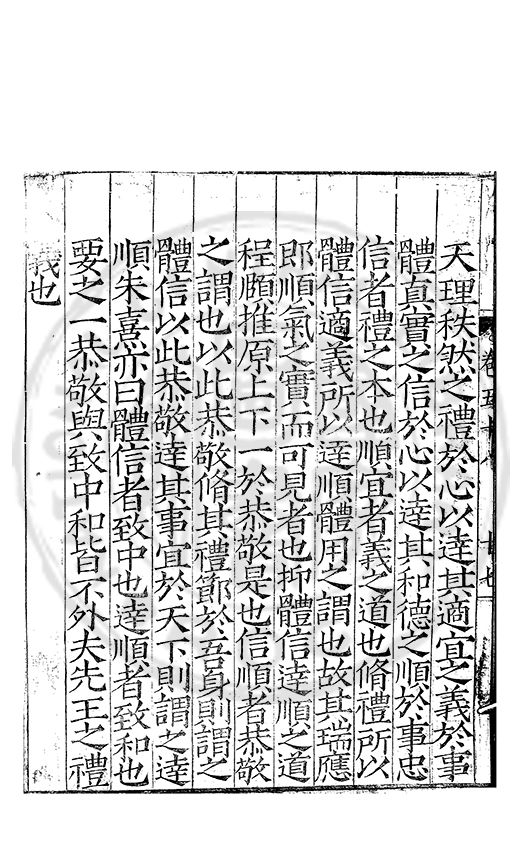 天理秩然之禮於心以達其適宜之義於事
體真實之信於心以達其和德之順於事忠
信者禮之本也順宜者義之道也脩禮所以
體信適義所以達順體用之謂也故其瑞應
即順氣之實而可見者也抑體信達順之道
程頤推原上下一於恭敬是也信順者恭敬
之謂也以此恭敬脩其禮節於吾身則謂之
體信以此恭敬達其事宜於天下則謂之達
順朱熹亦曰體信者致中也達順者致和也
要之一恭敬與致中和皆不外夫先王之禮
義也
卷五十
十七